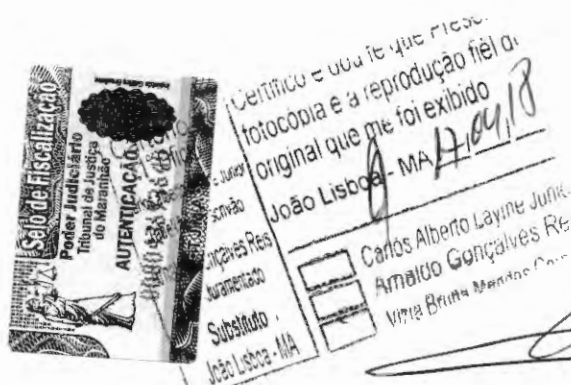 Selo de Fiscalização
Poder Judiciário
Tribunal de Justiça
do Maranhão
AUTENTICAÇÃO
Junior
Escrivão
nçalves Reis
Juramentado
Substituto
João Lisboa - MA
Certifico e dou fé que
fotocópia e a reprodução fiel d
original que me foi exibido
João Lisboa - MA 17,04,18
Carlos Alberto Layme Junic
Arnaldo Gonçalves Re
Bruna Mendes